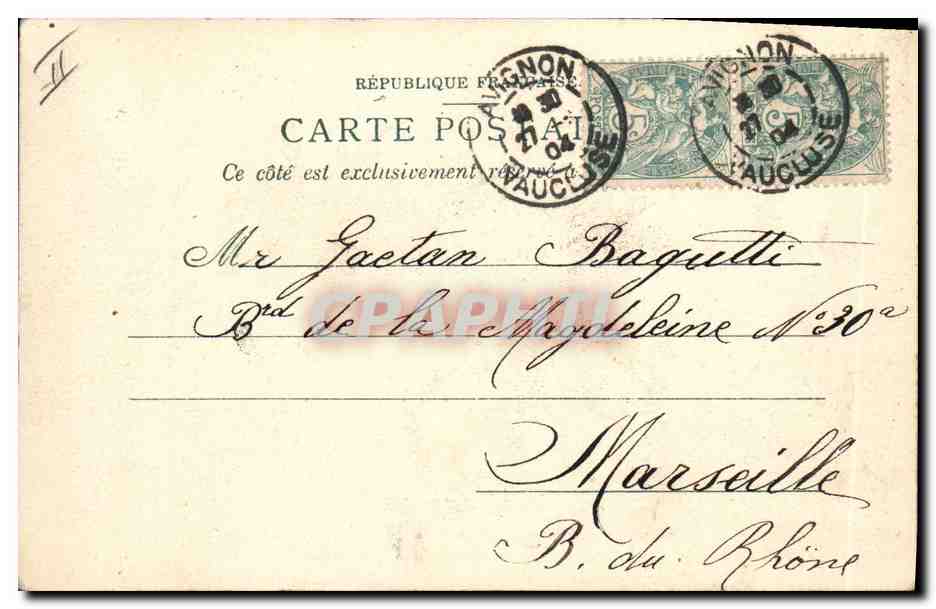 11
RÉPUBLIQUE FRANÇAISE
CARTE POSTAL
Ce côté est exclusivement réservé à
AVIGNON
27
04
VAUCLUSE
AVIGNON
27
04
VAUCLUSE
5c
5
Mr Gaetan Bagutti
Brd de la Magdeleine No 30a
CPAPHIL
Marseille
B. du Rhône